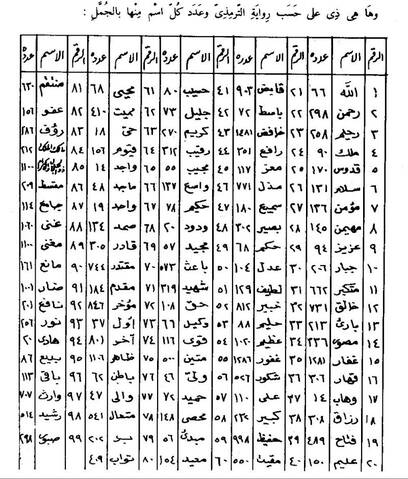 وها هى ذى على حسب رواية الترمذى وعدد كل اسم منها بالجمل :
الرقم الاسم عدده الرقم الاسم عدده الرقم الاسم عدده الرقم الاسم عدده الرقم الاسم عدده
١ الله ٦٦ ٢١ قابض ٩٠٣ ٤١ حسيب ٨٠ ٦١ محيى ٦٨ ٨١ منتقم ٦٣٠
٢ رحمن ٢٩٨ ٢٢ باسط ٧٢ ٤٢ جليل ٧٣ ٦٢ مميت ٤٩٠ ٨٢ عفو ١٥٦
٣ رحيم ٢٥٨ ٢٣ خافض ١٤٨١ ٤٣ كريم ٢٧٠ ٦٣ حى ١٨ ٨٣ رؤف ٢٨٦
٤ ملك ٩٠ ٢٤ رافع ٣٥١ ٤٤ رقيب ٣١٢ ٦٤ قيوم ١٥٦ ٨٤ مالك الملك ٢١٢
٥ قدوس ١٧٠ ٢٥ معز ١١٧ ٤٥ مجيب ٥٥ ٦٥ واجد ١٤ ٨٥ ١١٠٠
٦ سلام ١٣١ ٢٦ مذل ٧٧١ ٤٦ واسع ١٣٧ ٦٦ ماجد ٤٨ ٨٦ مقسط ٢٠٩
٧ مؤمن ١٣٦ ٢٧ سميع ١٨٠ ٤٧ حكيم ٧٨ ٦٧ واحد ١٩ ٨٧ جامع ١١٤
٨ مهيمن ١٤٥ ٢٨ بصير ٣٠٢ ٤٨ ودود ٢٠ ٦٨ صمد ١٣٤ ٨٨ غنى ١٠٦٠
٩ عزيز ٩٤ ٢٩ حكم ٦٨ ٤٩ مجيد ٥٧ ٦٩ قادر ٣٠٥ ٨٩ مغنى ١١٠٠
١٠ جبار ٢٠٦ ٣٠ عدل ١٠٤ ٥٠ باعث ٥٧٣ ٧٠ مقتدر ٧٤٤ ٩٠ مانع ١٦١
١١ متكبر ٦٦٢ ٣١ لطيف ١٢٩ ٥١ شهيد ٣١٩ ٧١ مقدم ١٨٤ ٩١ ضار ١٠٠١
١٢ خالق ٧٣١ ٣٢ خبير ٨١٢ ٥٢ حق ١٠٨ ٧٢ مؤخر ٨٤٦ ٩٢ نافع ٢٠١
١٣ بارئ ٢١٣ ٣٣ حليم ٨٨ ٥٣ وكيل ٦٦ ٧٣ اول ٣٧ ٩٣ نور ٢٥٦
١٤ مصور ٣٣٦ ٣٤ عظيم ١٠٢٠ ٥٤ قوى ١١٦ ٧٤ آخر ٨٠١ ٩٤ هادى ٢٠
١٥ غفار ١٢٨١ ٣٥ غفور ١٢٨٦ ٥٥ متين ٥٠٠ ٧٥ ظاهر ١١٠٦ ٩٥ بديع ٨٦
١٦ قهار ٣٠٦ ٣٦ شكور ٥٢٦ ٥٦ ولى ٤٦ ٧٦ باطن ٦٢ ٩٦ باقى ١١٣
١٧ وهاب ١٤ ٣٧ على ١١٠ ٥٧ حميد ٦٢ ٧٧ والى ٤٧ ٩٧ وارث ٧٠٧
١٨ رزاق ٣٠٨ ٣٨ كبير ٢٣٢ ٥٨ محصى ١٤٨ ٧٨ متعال ٥٤١ ٩٨ رشيد ٥١٤
١٩ فتاح ٤٨٩ ٣٩ حفيظ ٩٩٨ ٥٩ مبدئ ٥٦ ٧٩ بر ٢٠٢ ٩٩ صبور ٢٩٨
٢٠ عليم ١٥٠ ٤٠ مقيت ٥٥٠ ٦٠ معيد ٨٠ تواب ٤٠٩